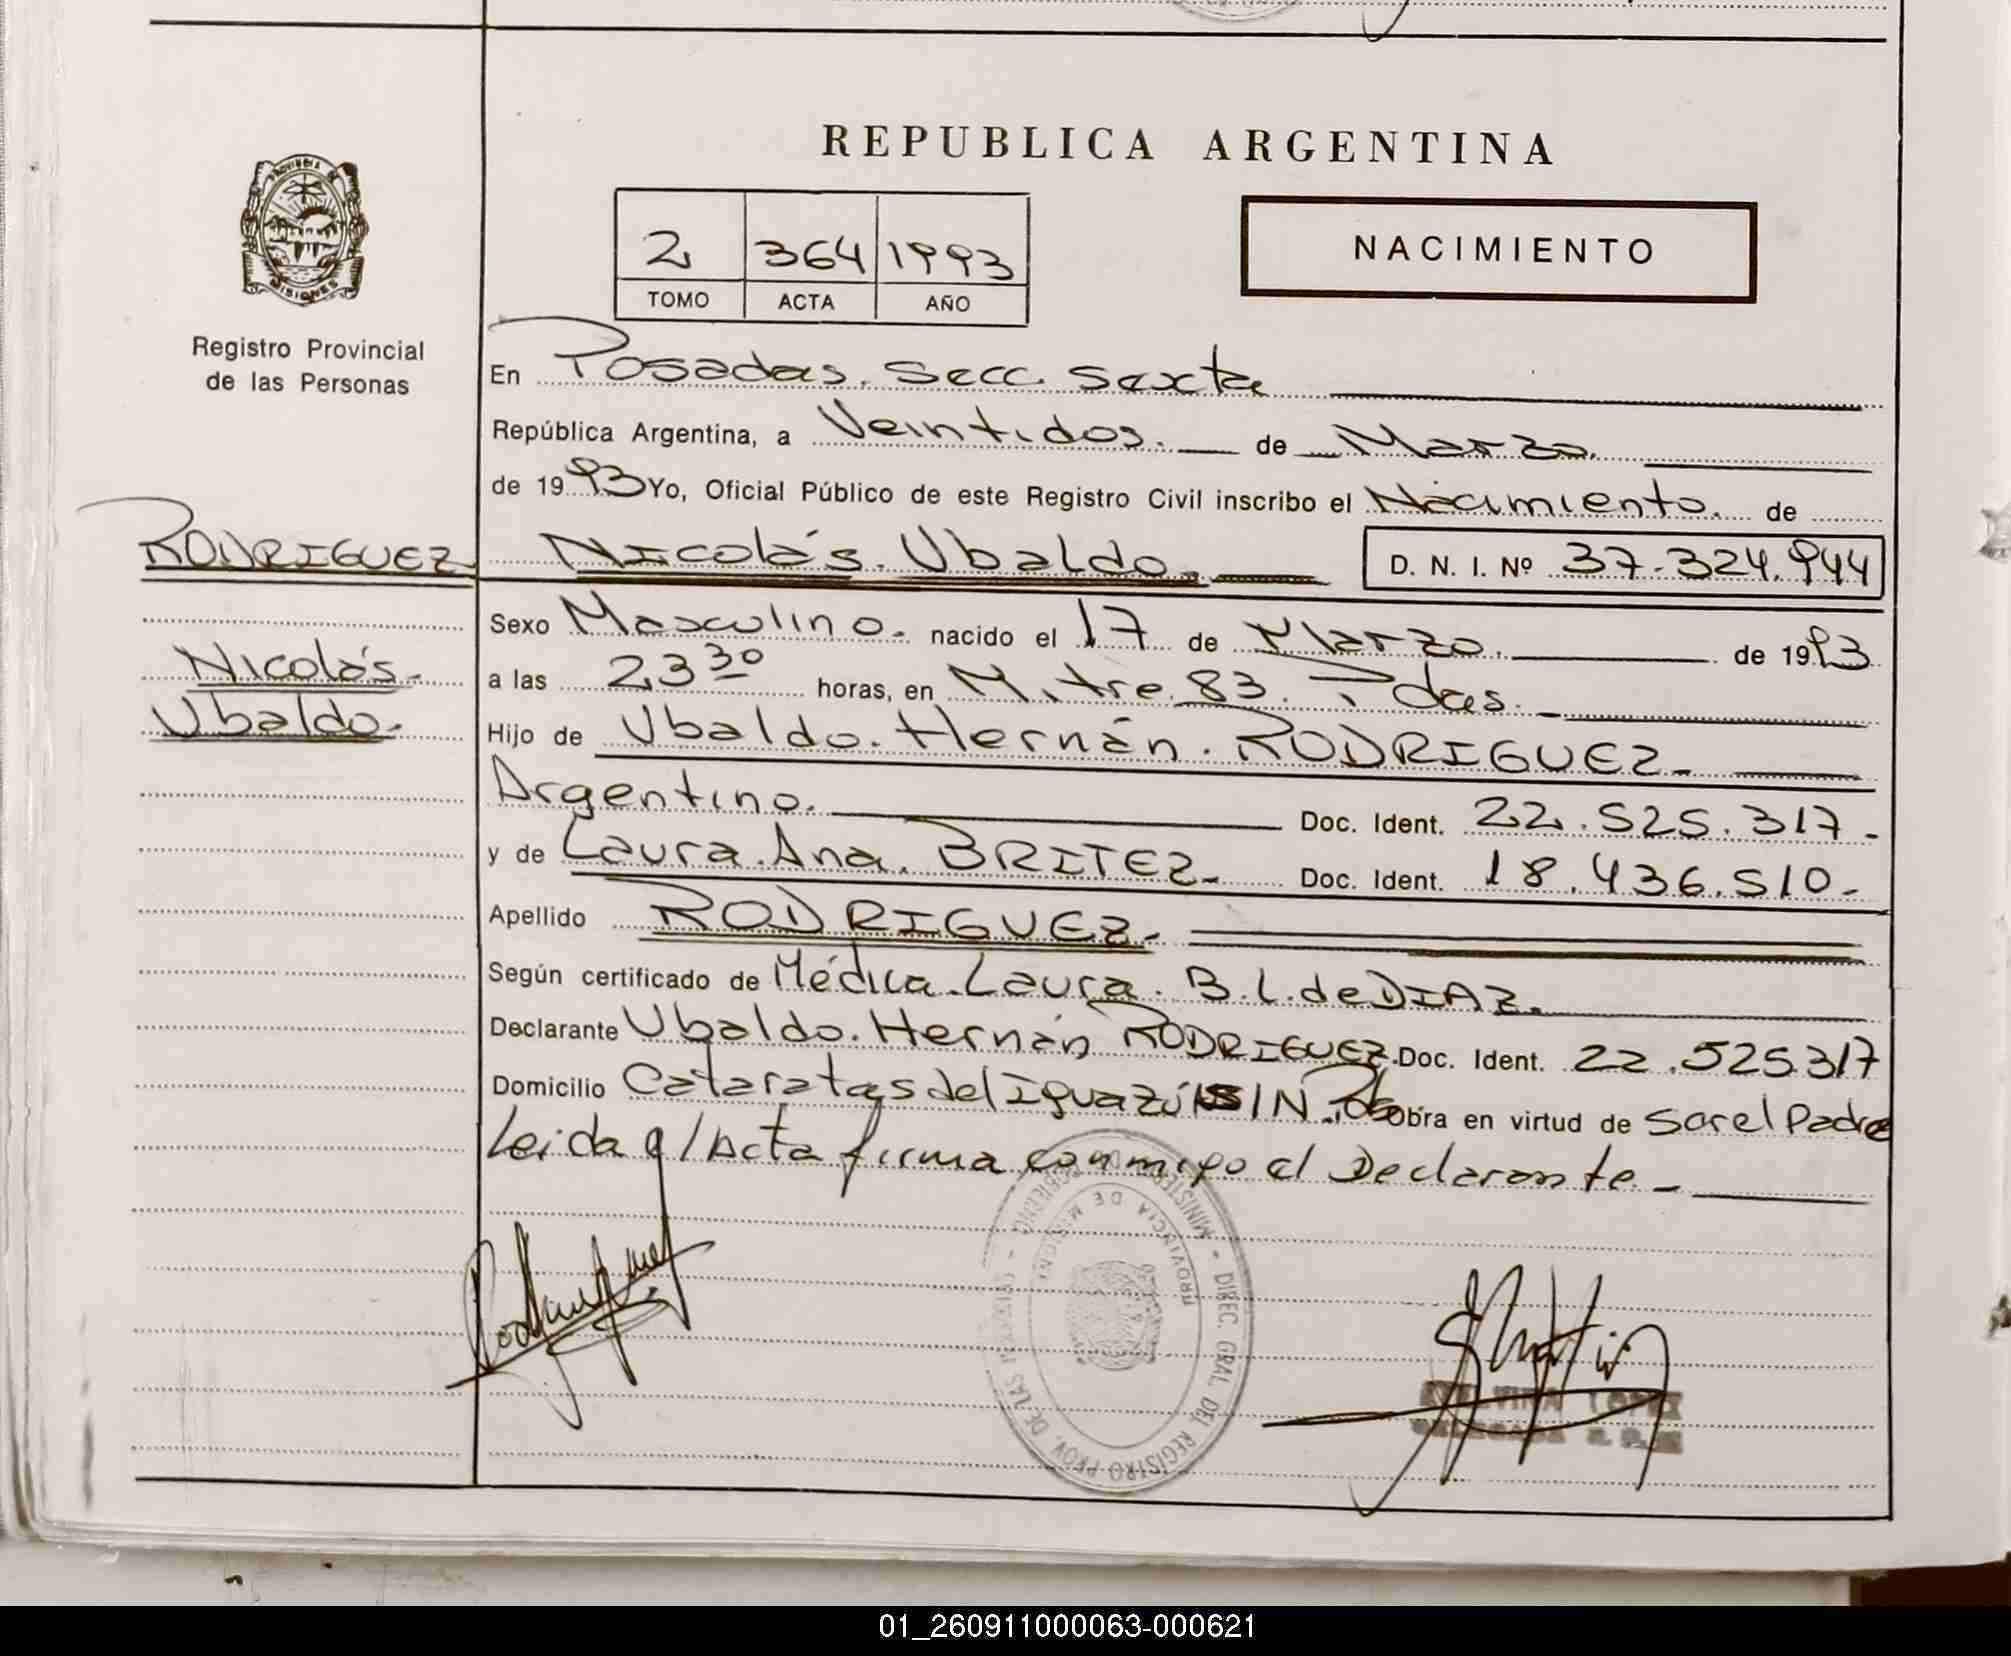 REPUBLICA ARGENTINA
PROVINCIA DE
MISIONES
Registro Provincial
de las Personas
2 364 1993
TOMO ACTA AÑO
NACIMIENTO
En Posadas. Secc. Sexta
República Argentina, a Veintidos. de Marzo.
de 1993 Yo, Oficial Público de este Registro Civil inscribo el Nacimiento. de
RODRIGUEZ Nicolás. Ubaldo. D. N. I. Nº 37.324.944
Sexo Masculino. nacido el 17 de Marzo. de 1993
Nicolás. a las 23 30 horas, en Mitre 83. Pdas.
Ubaldo. Hijo de Ubaldo. Hernán. RODRIGUEZ
Argentino. Doc. Ident. 22.525.317.-
y de Laura. Ana. BRITEZ Doc. Ident. 18.436.510.-
Apellido RODRIGUEZ.
Según certificado de Médica. Laura. B. L. de DIAZ.
Declarante Ubaldo. Hernán RODRIGUEZ. Doc. Ident. 22.525.317
Domicilio Cataratas del Iguazú S/N. Obra en virtud de Ser el Padre
Leida e/ Acta firma conmigo el Declarante.-
MINISTERIO DE GOBIERNO - DIREC. GRAL. DEL REGISTRO PROV. DE LAS
PROVINCIA DE MISIONES
01_260911000063-000621